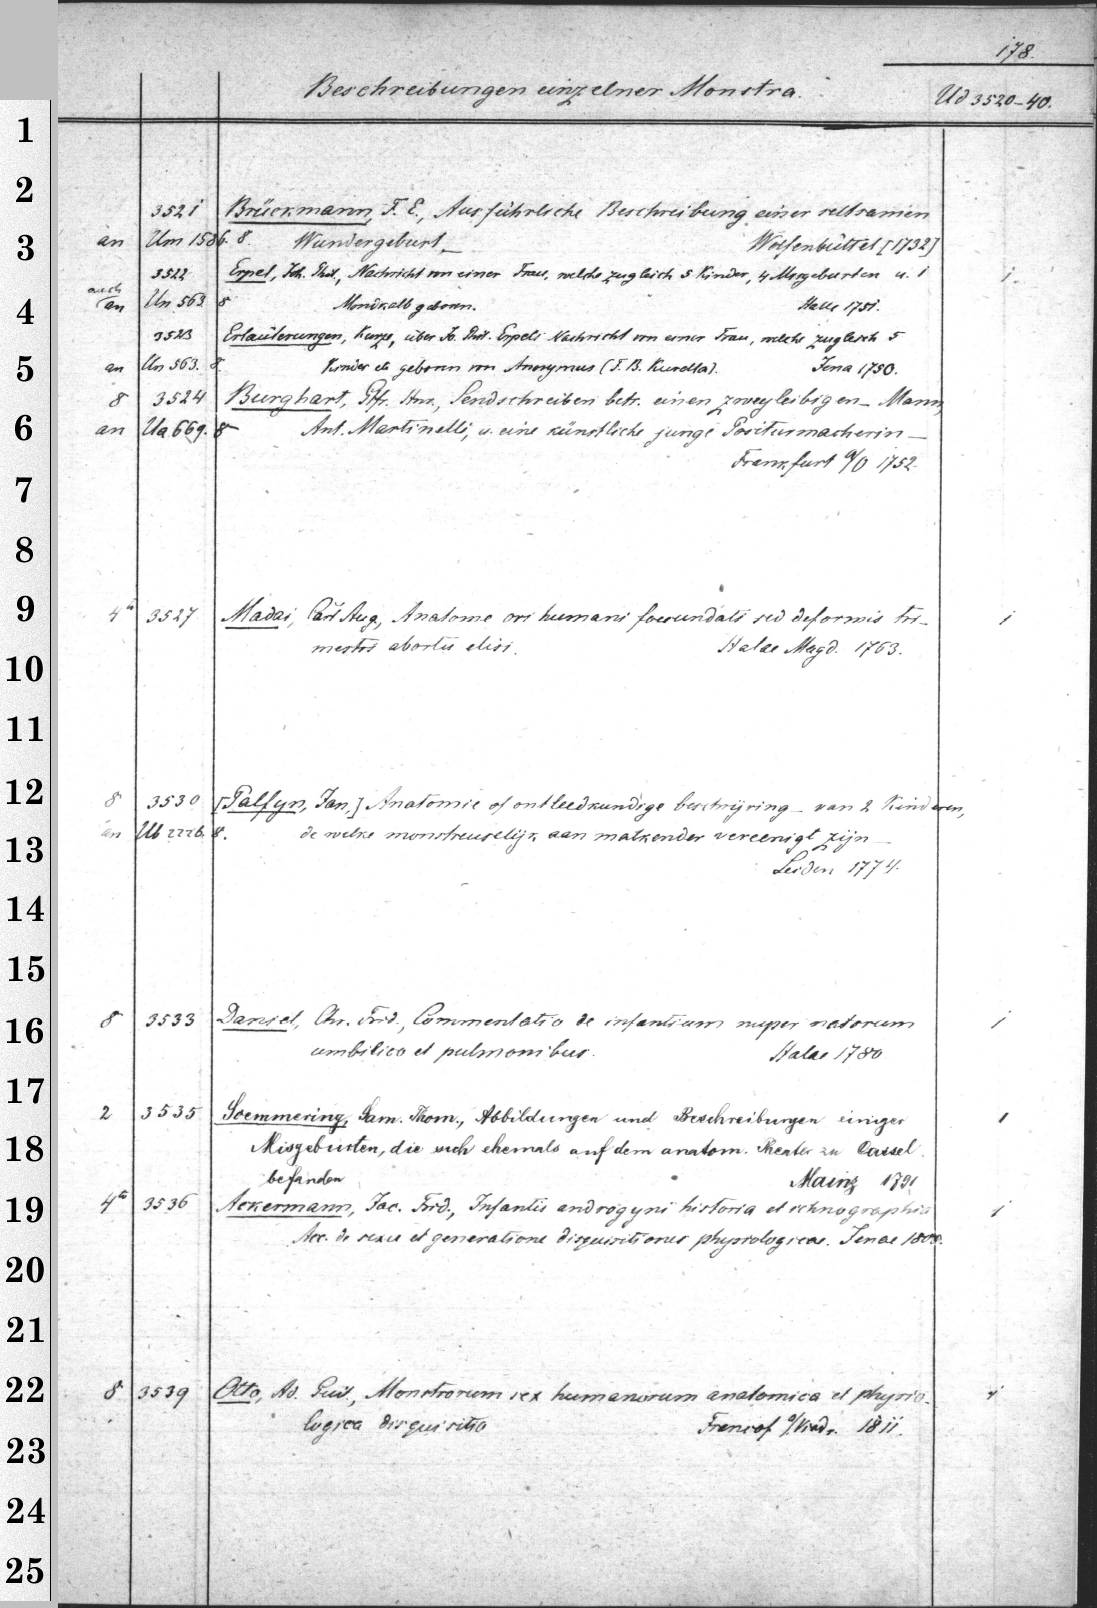 178.
Beschreibungen einzelner Monstra.
Ud 3520-40.
1
2
3521 Brückmann, F. E., Ausführliche Beschreibung einer seltsamen
3
an Um 1586. 8. Wundergeburt_ Wolfenbüttel [1732]
3522 Erpel, Joh. Phil., Nachricht von einer Frau, welche zugleich 5 Kinder, 4 Missgeburten u. 1 1
auch
4
an Un 563 8 Mondkalb geboren. Halle 1751.
3523 Erläuterungen, Kurze, über Jo. Phil. Erpels Nachricht von einer Frau, welche zugleich 5
5
an Un 563. 8 Kinder etc geboren von Anonymus (F. B. Kurella). Jena 1750.
8 3524 Burghart, Gfr. Hnr., Sendschreiben betr. einen zweyleibigen_ Mann,
6
an Ua 669. 8 Ant. Martinelli, u. eine künstliche junge Positurmacherin_
Frankfurt a/O 1752.
7
8
9
4° 3527 Madai, Carl Aug., Anatome ovi humani foecundati sed deformis tri- 1
10
mestri abortu elisi. Halae Magd. 1763.
11
12
8 3530 [Palfyn, Jan,] Anatomie of ontleedkundige beschrijving_ van 2 Kinderen,
13
an Ub 2226. 8. de welke monstreuselijk aan malkender vereenigt zijn_
Leiden 1774.
14
15
16
8 3533 Daniel, Chr. Frid., Commentatio de infantium nuper natorum 1
umbilico et pulmonibus. Halae 1780
17
2 3535 Soemmering, Sam. Thom., Abbildungen und Beschreibungen einiger 1
18
Misgeburten, die sich ehemals auf dem anatom. Theater zu Cassel
befanden Mainz 1791
19
4° 3536 Ackermann, Jac. Frid., Infantis androgyni historia et ichnographia 1
Acc. de sexu et generatione disquisitiones physiologicae. Jenae 1805.
20
21
22
8 3539 Otto, Ad. Guil., Monstrorum sex humanorum anatomica et physio- 1
23
logica disquisitio Francof a/Viadr. 1811.
24
25